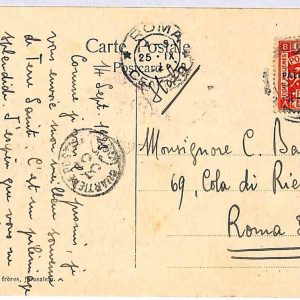 Carte Postale
Postcard
ROMA
25 IX
14 Sept. 192
Comme promis, je
vous envoie mon meilleur souvenir
de Terre Sainte. C'est un pèlerinage
splendide. J'espère que vous
Monsignore C. Ba
69, Cola di Rie
Roma
frères, Jérusalem.
8